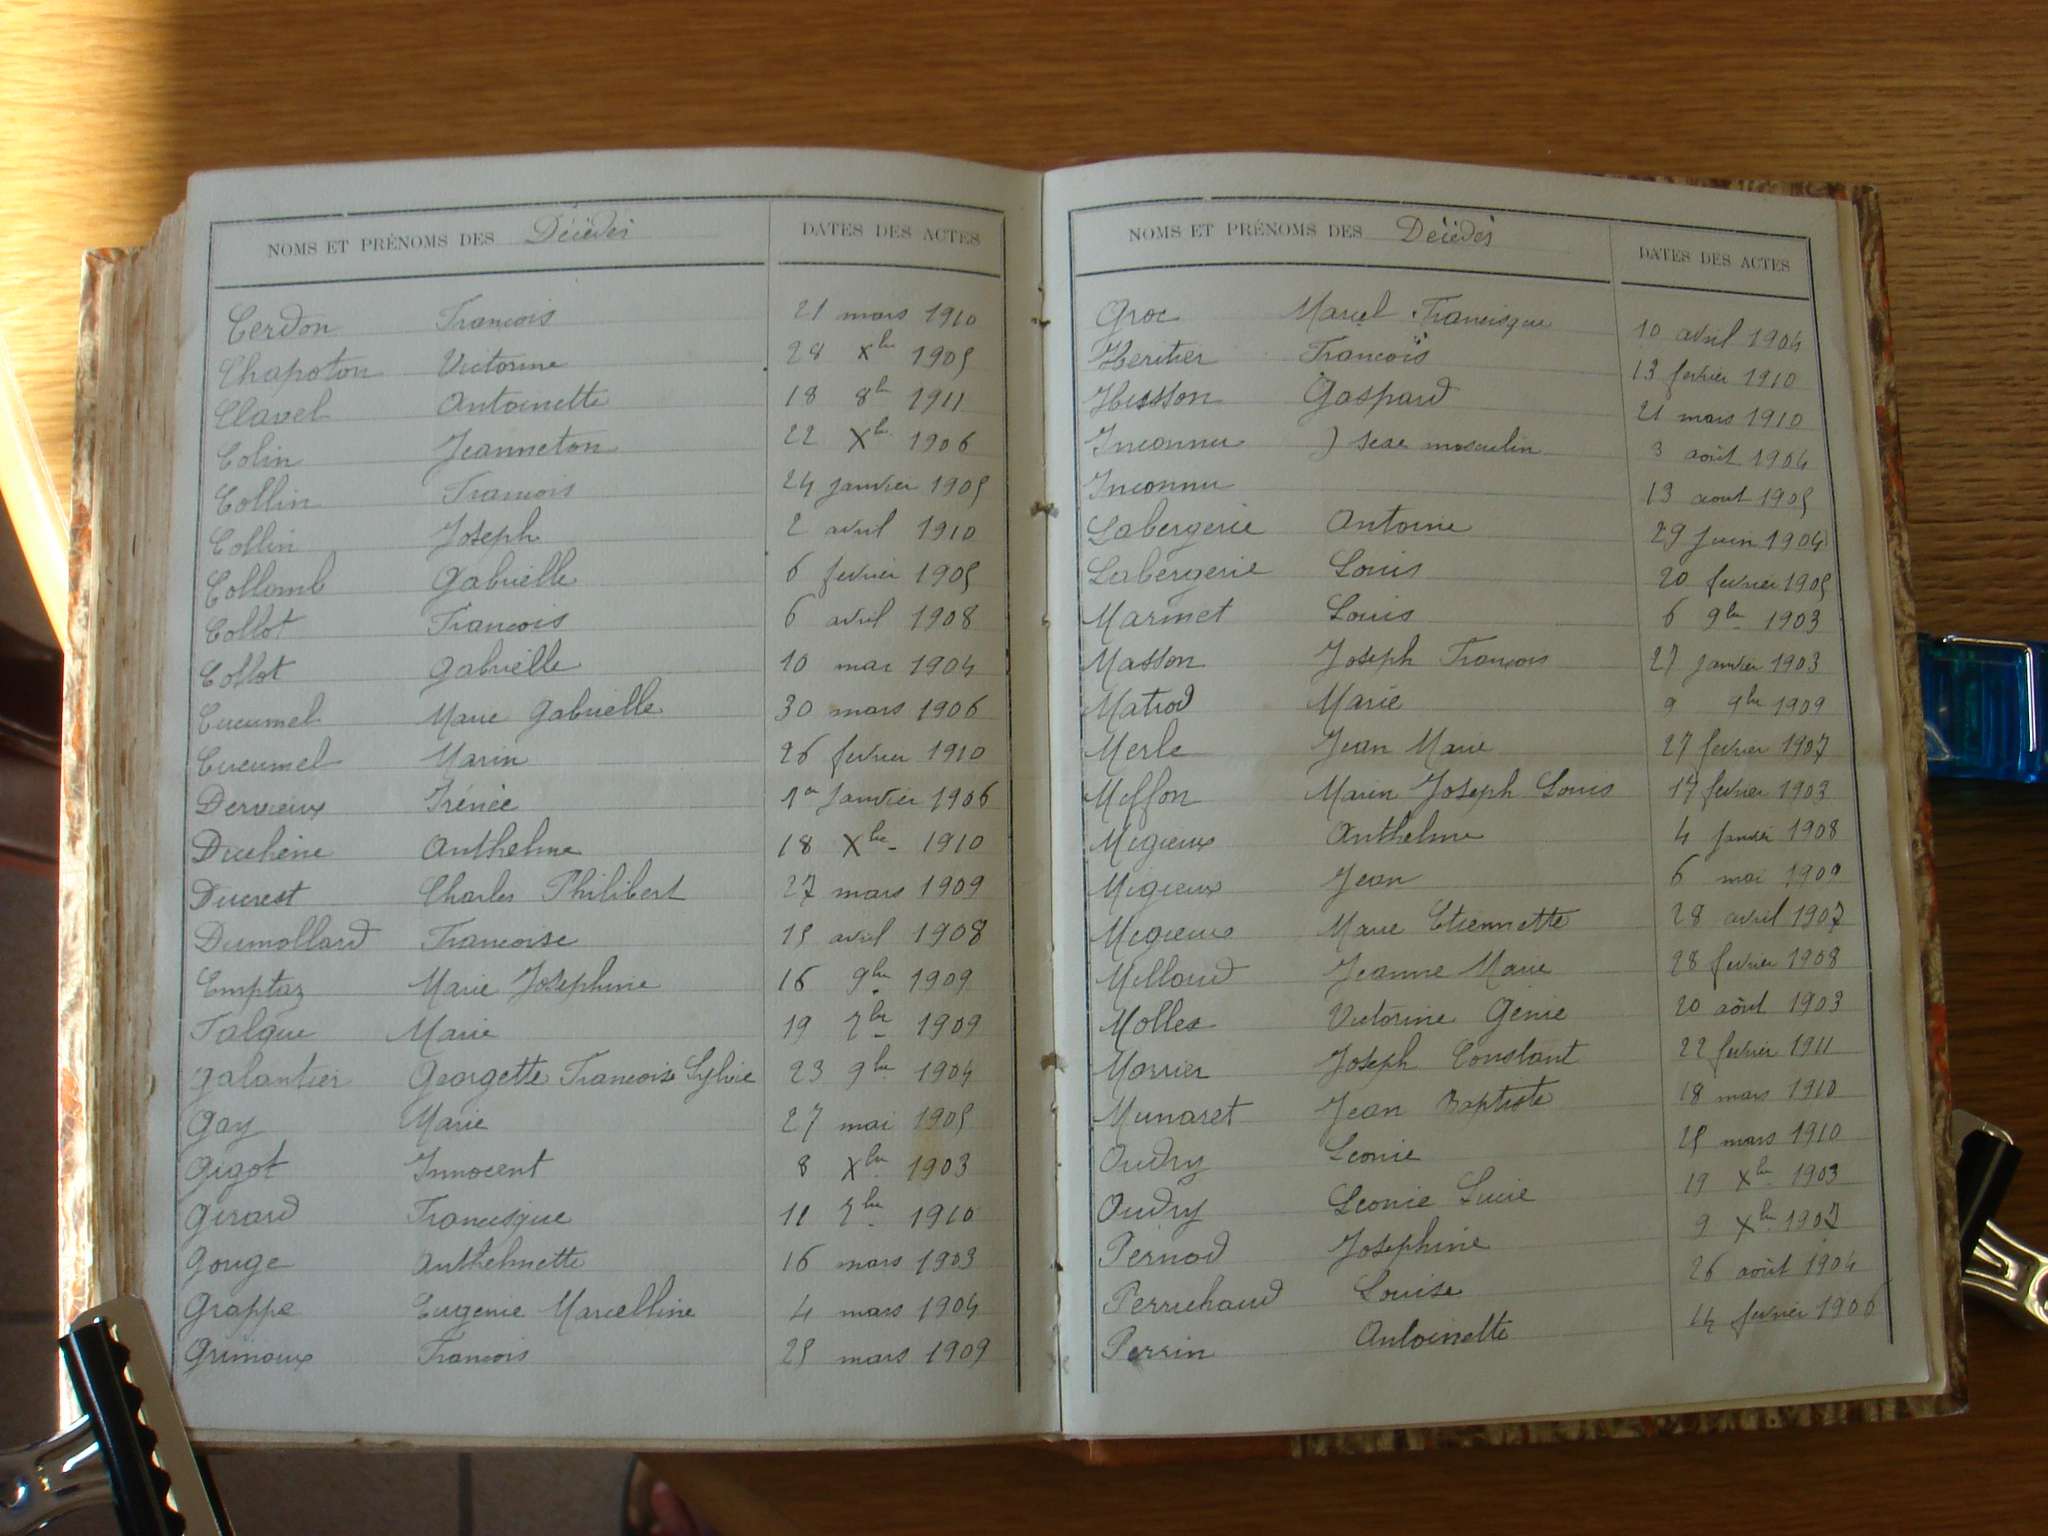 NOMS ET PRÉNOMS DES Décédés DATES DES ACTES
Cerdon François 21 mars 1910
Chapoton Victorine 28 Xbre 1905
Clavel Antoinette 18 8bre 1911
Colin Jeanneton 22 Xbre 1906
Collin François 24 janvier 1905
Collin Joseph 2 avril 1910
Collomb Gabrielle 6 fevrier 1905
Collot François 6 avril 1908
Collot Gabrielle 10 mai 1904
Cucumel Marie Gabrielle 30 mars 1906
Cucumel Marin 26 fevrier 1910
Dervieux Irénée 1er Janvier 1906
Duchêne Anthelme 18 Xbre 1910
Ducrest Charles Philibert 27 mars 1909
Dumollard Françoise 15 avril 1908
Emptaz Marie Josephine 16 9bre 1909
Falque Marie 19 7bre 1909
Galantier Georgette Françoise Sylvie 23 9bre 1904
Gay Marie 27 mai 1905
Gigot Innocent 8 Xbre 1903
Girard Francisque 11 7bre 1910
Gouge Anthelmette 16 mars 1903
Grappe Eugenie Marcelline 4 mars 1904
Grimoux François 25 mars 1909
NOMS ET PRÉNOMS DES Décédés DATES DES ACTES
Groc Marcel Francisque 10 avril 1904
Heritier François 13 fevrier 1910
Hesson Gaspard 21 mars 1910
Inconnu ) sexe masculin 3 août 1904
Inconnu 13 aout 1905
Labergerie Antoine 29 Juin 1904
Labergerie Louis 20 fevrier 1905
Marmet Louis 6 9bre 1903
Masson Joseph François 27 janvier 1903
Matrod Marie 9 9bre 1909
Merle Jean Marie 27 fevrier 1907
Miffon Marin Joseph Louis 17 fevrier 1903
Migieux Anthelme 4 Janvier 1908
Migieux Jean 6 mai 1909
Migieux Marie Etiennette 28 avril 1907
Milloud Jeanne Marie 28 fevrier 1908
Mollex Victorine Génie 20 août 1903
Morrier Joseph Constant 22 fevrier 1911
Munaret Jean Baptiste 18 mars 1910
Oudry Leonie 25 mars 1910
Oudry Leonie Lucie 19 Xbre 1903
Pernod Josephine 9 Xbre 1907
Perruchaud Louise 26 août 1904
Perrin Antoinette 14 fevrier 1906